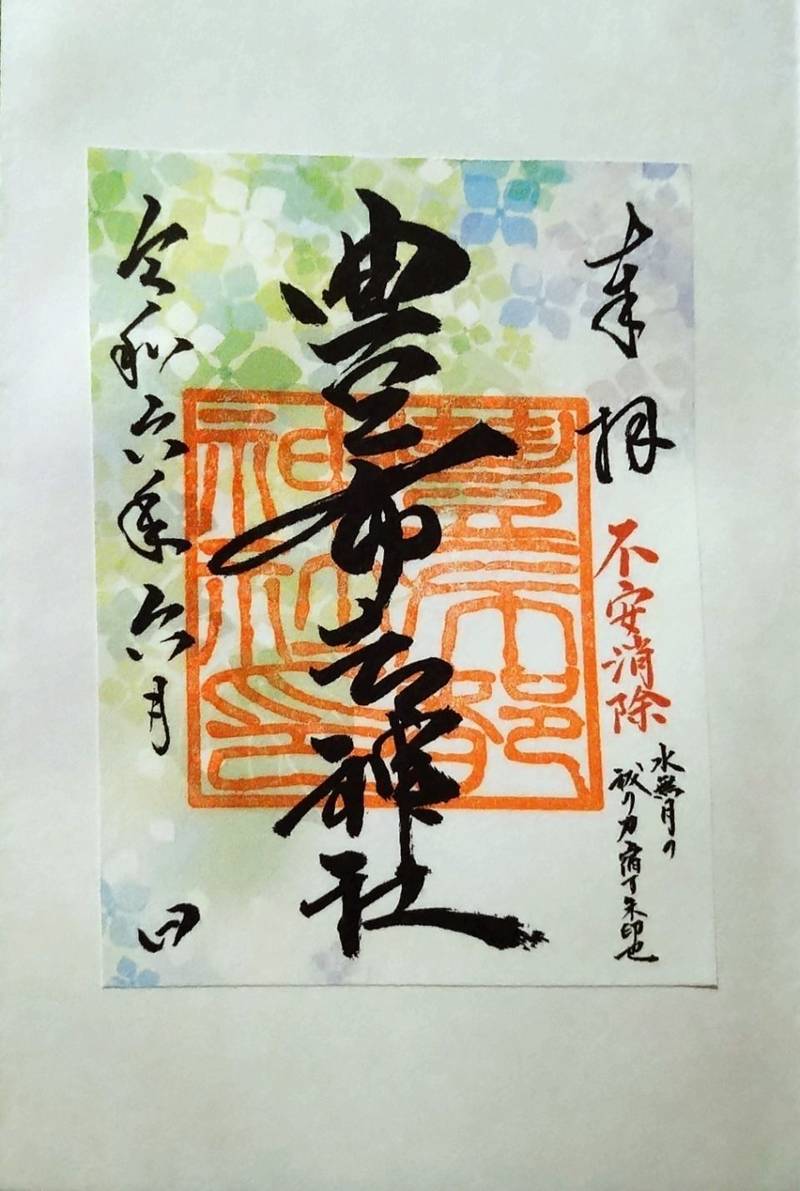 奉拝
不安消除
水無月の
祓の力宿す朱印也
豊布都神社
豊布都
神社印
令和六年六月 日